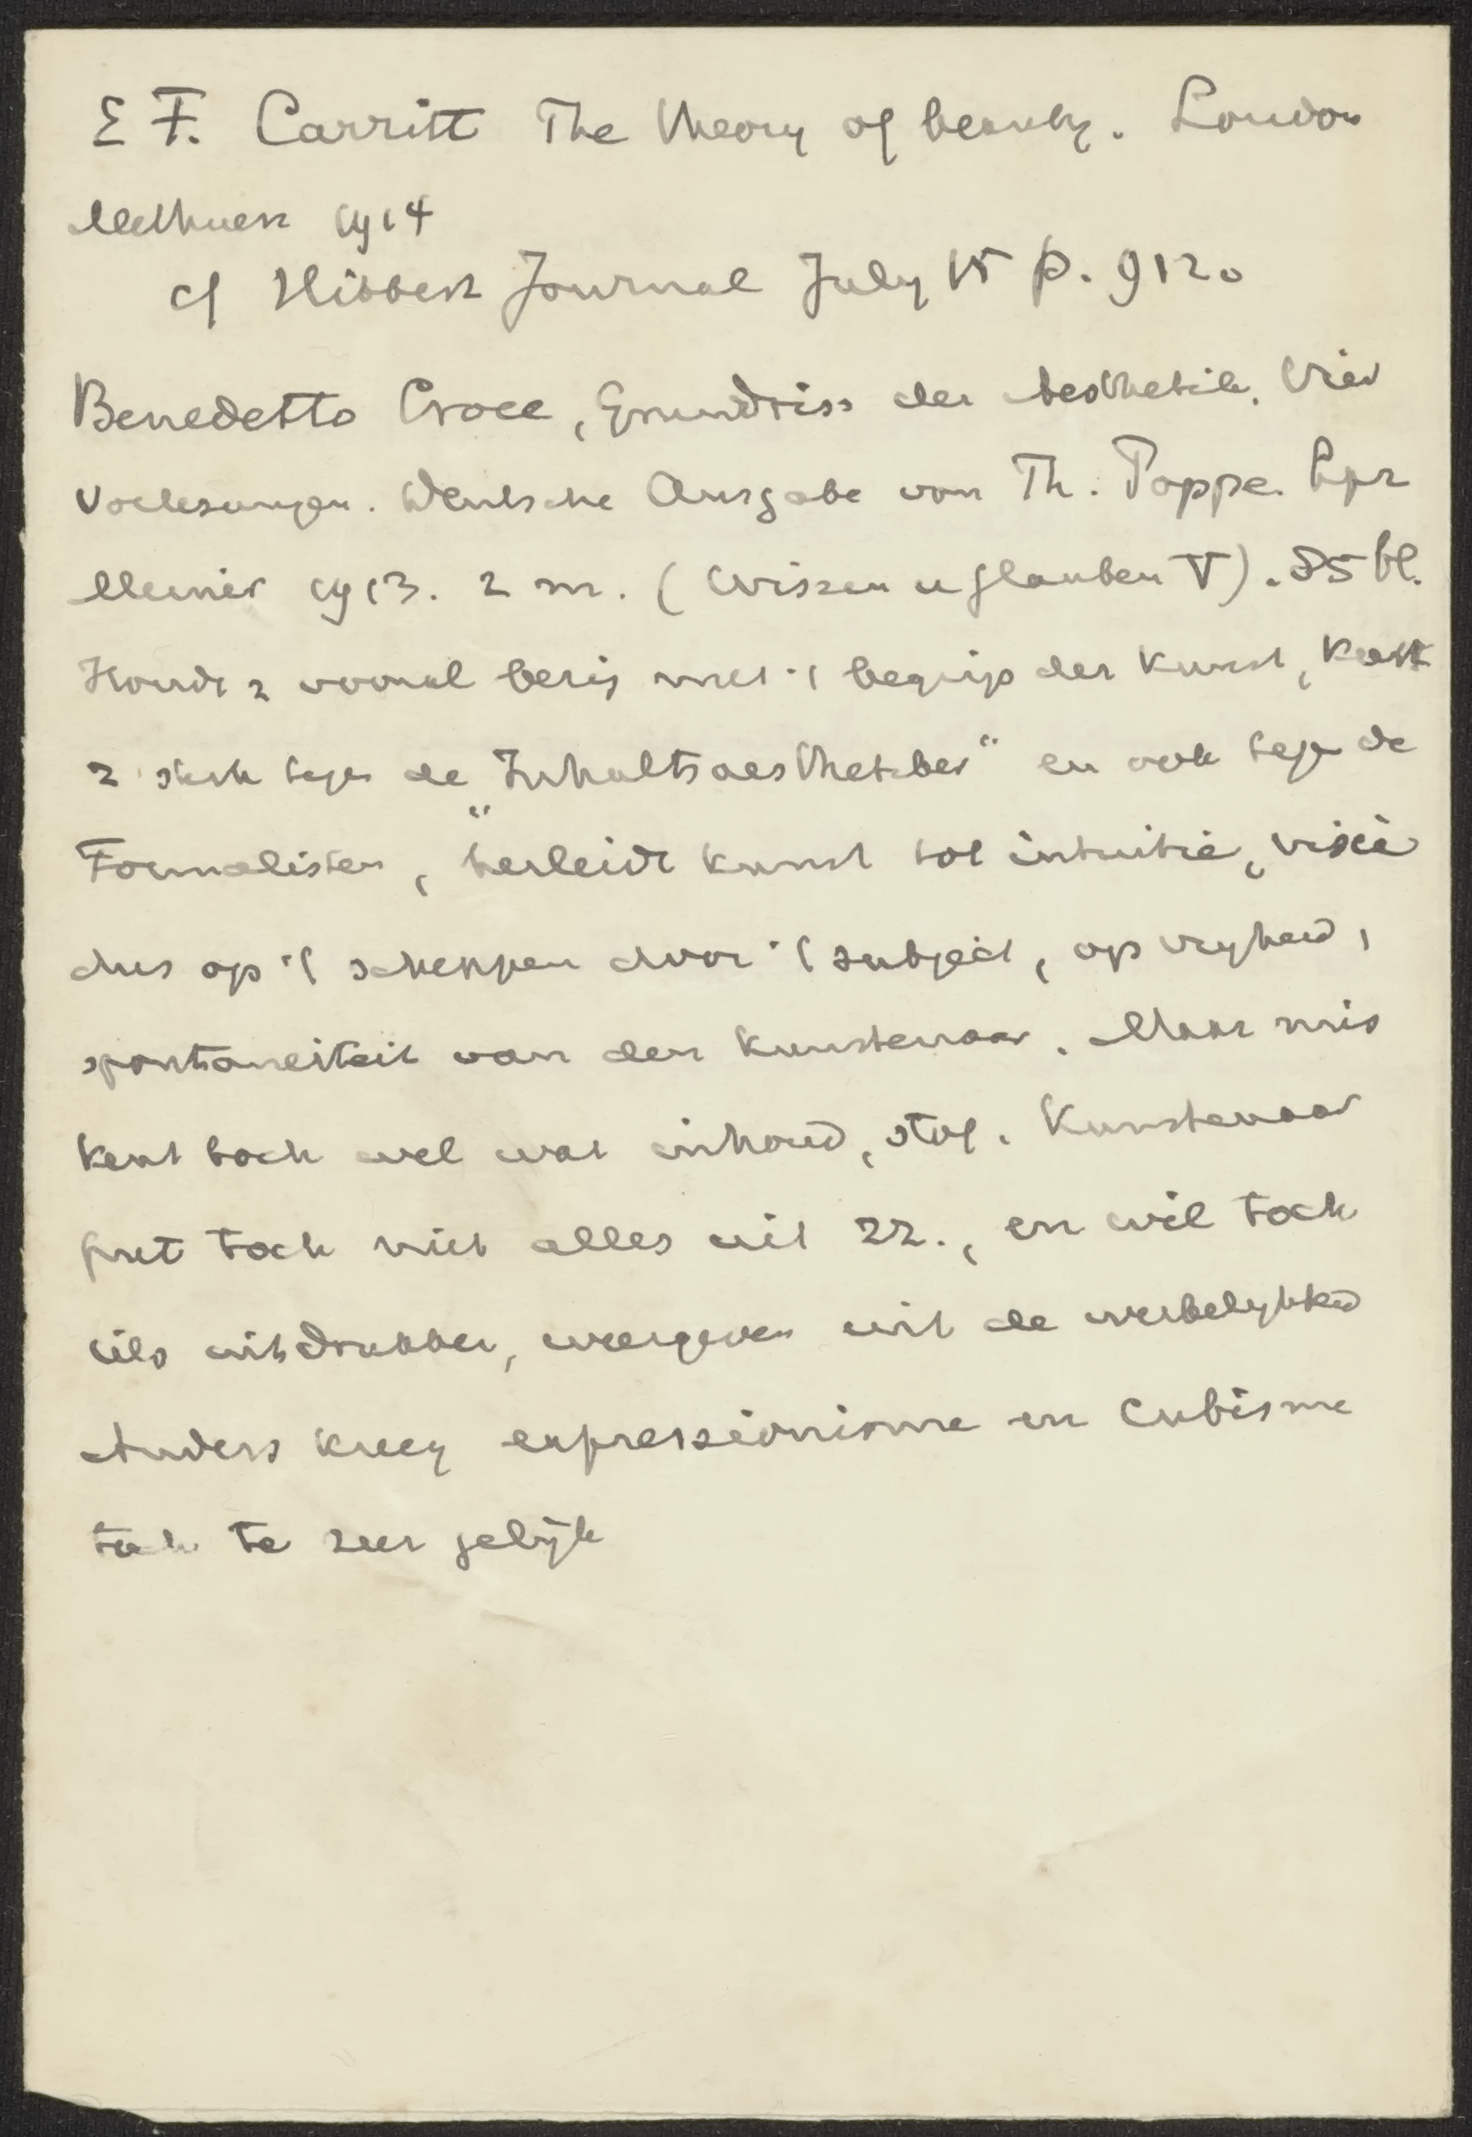 E F. Carritt The theory of beauty. London
Methuen 1914
cf Hibbert Journal July 15 p. 912.
Benedetto Croce, Grundriss der Aesthetik. Vier
Vorlesungen. Deutsche Ausgabe von Th. Poppe. Lpz
Meiner 1913. 2 m. (Wissen u glauben V). 85 bl.
Houdt z vooral bezig met 't begrip der kunst, kant
z sterk tegen de „Inhaltsaesthetiker" en ook tegen de
„Formalisten, herleidt kunst tot intuitie, visie
dus op 't scheppen door 't subject, op vryheid,
spontaneiteit van den kunstenaar. Maar mis
kent toch wel wat inhoud, stof. Kunstenaar
put toch niet alles uit zz., en wil toch
iets uitdrukken, weergeven uit de werkelykhd
Anders kreeg expressionisme en Cubisme
toch te zeer gelijk